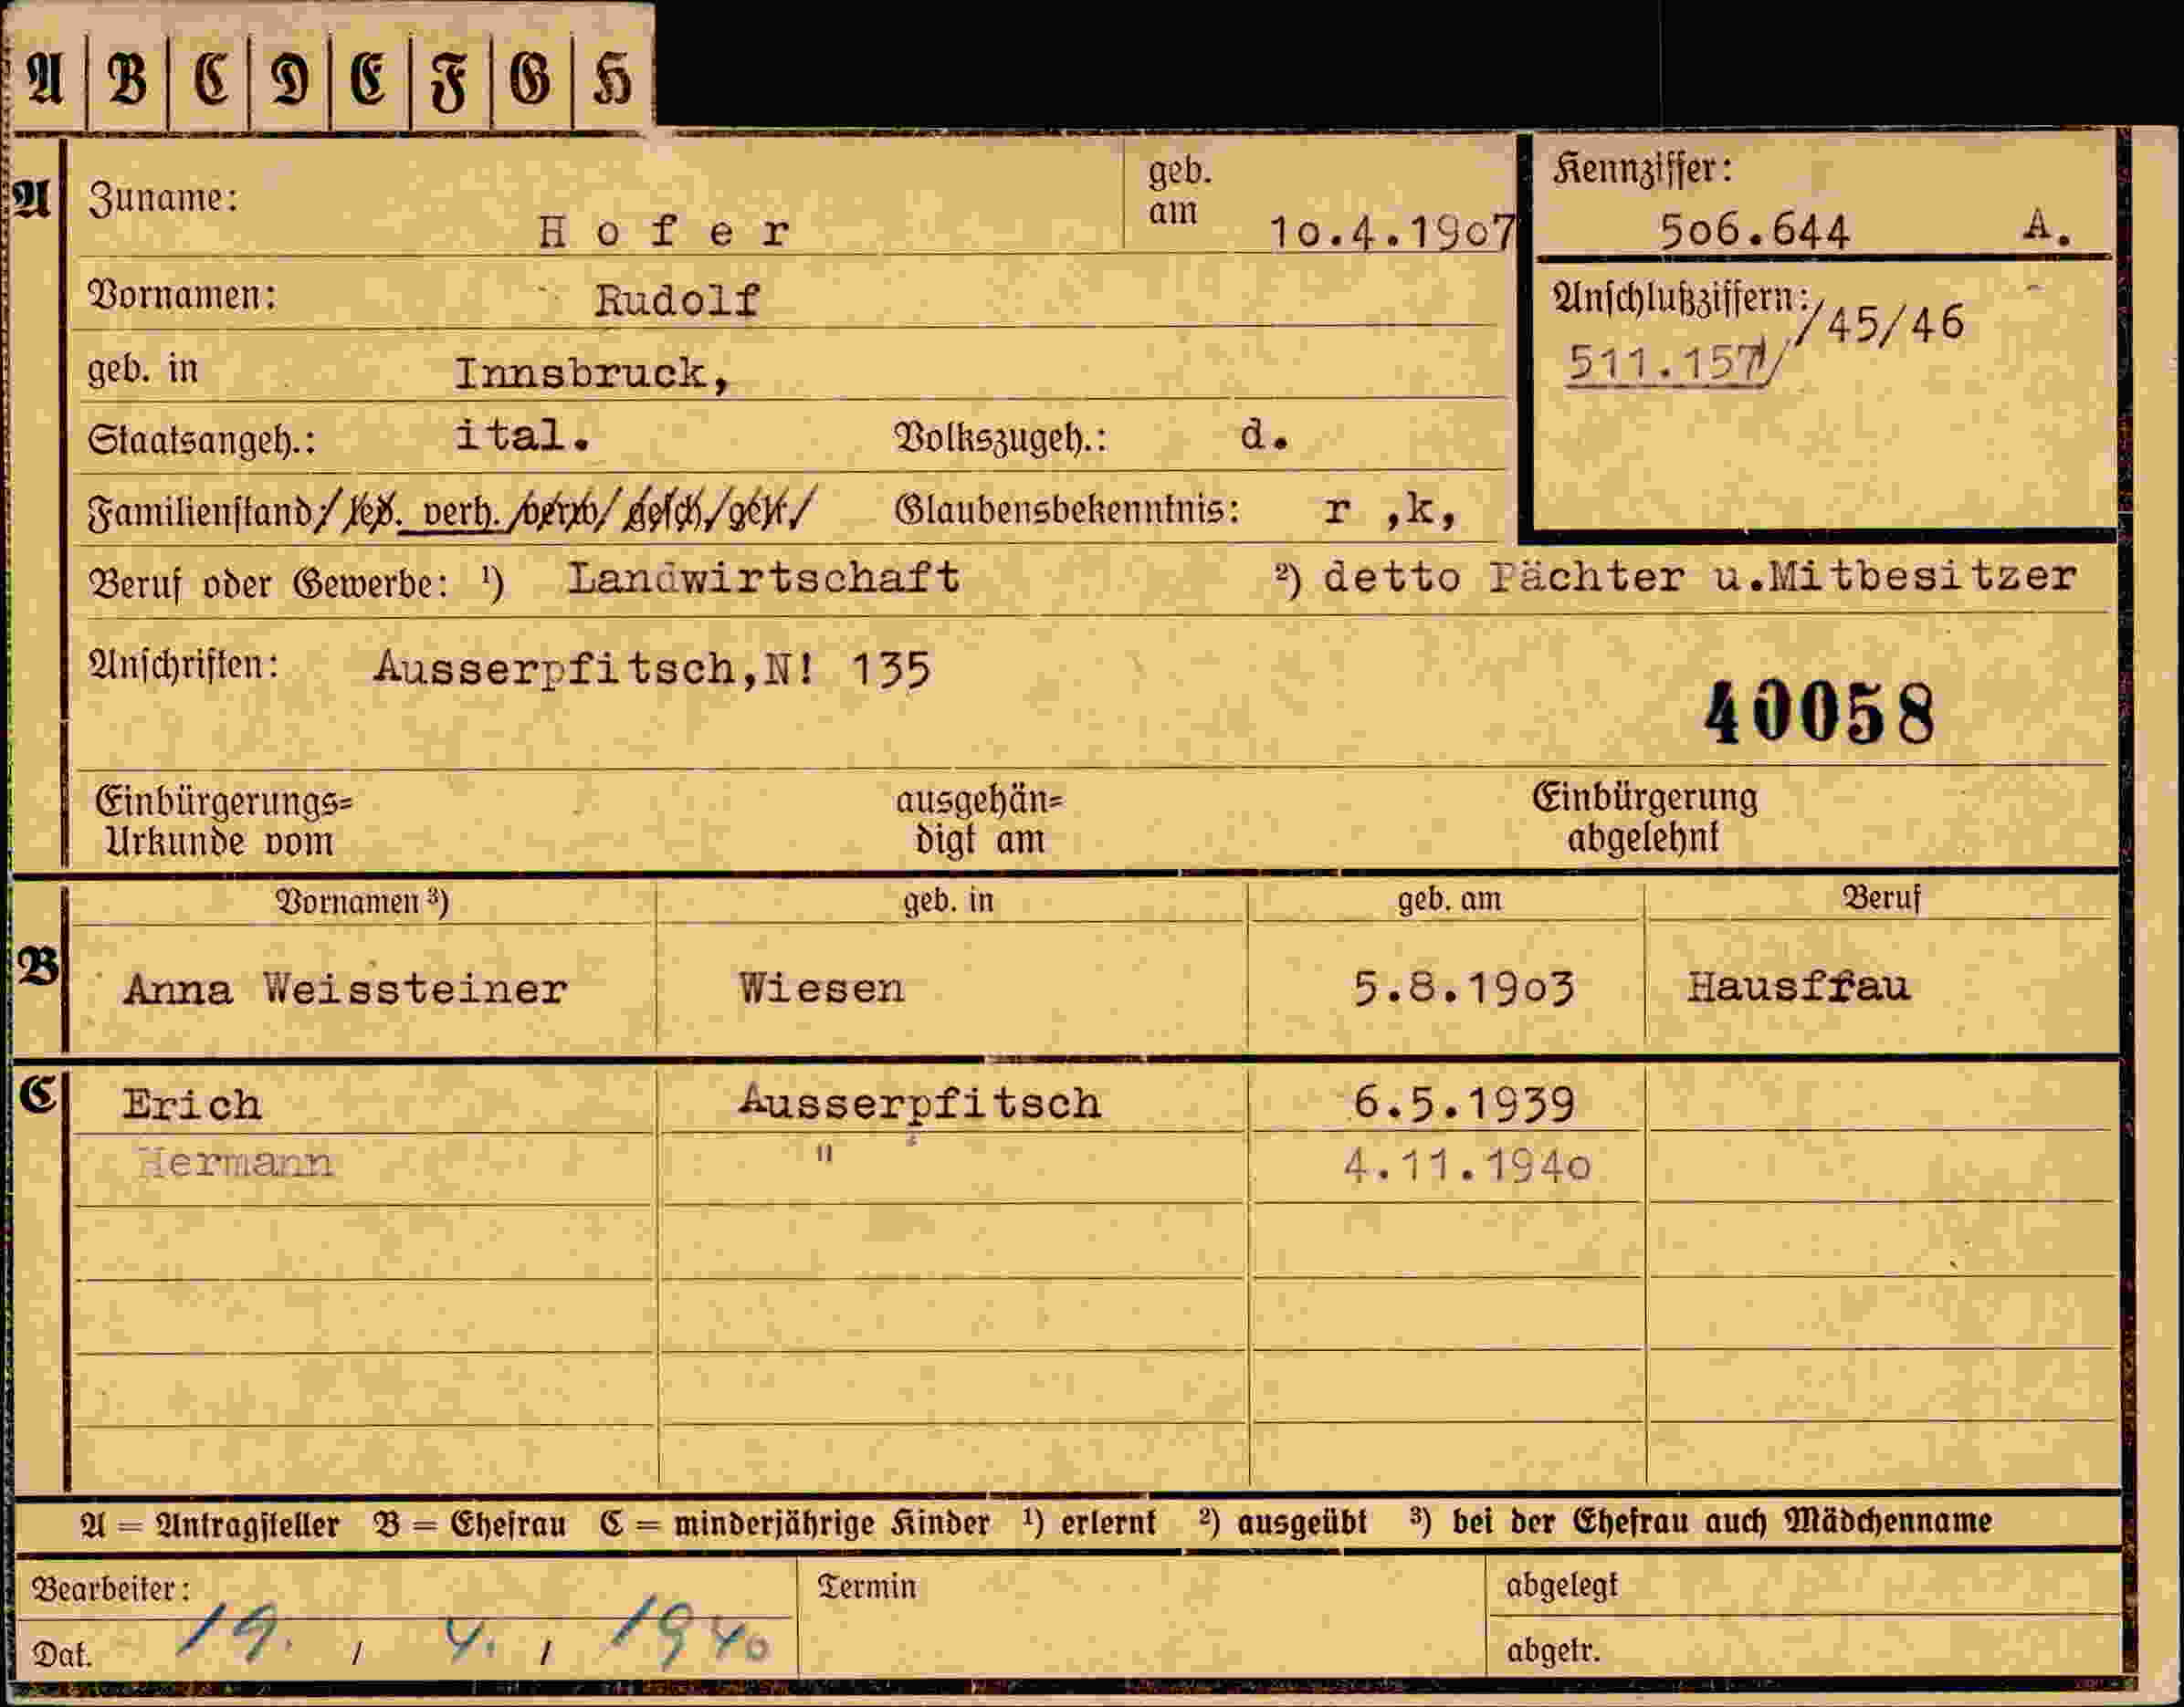 A B C D E F G H
A Zuname: Hofer geb. am 1o.4.19o7 Kennziffer: 5o6.644 A.
Vornamen: Rudolf Anschlußziffern: /45/46
geb. in Innsbruck, 511.157/
Staatsangeh.: ital. Volkszugeh.: d.
Familienstand: led. verh. verw. gesch. getr. Glaubensbekenntnis: r ,k,
Beruf oder Gewerbe: ¹) Landwirtschaft ²) detto Pächter u.Mitbesitzer
Anschriften: Ausserpfitsch,N! 135
40058
Einbürgerungs= ausgehän= Einbürgerung
Urkunde vom digt am abgelehnt
Vornamen ³) geb. in geb. am Beruf
B Anna Weissteiner Wiesen 5.8.19o3 Hausfrau
C Erich Ausserpfitsch 6.5.1939
Hermann " 4.11.194o
A = Antragsteller B = Ehefrau C = minderjährige Kinder ¹) erlernt ²) ausgeübt ³) bei der Ehefrau auch Mädchenname
Bearbeiter: Termin abgelegt
Dat. 19. / 4. / 1940 abgetr.